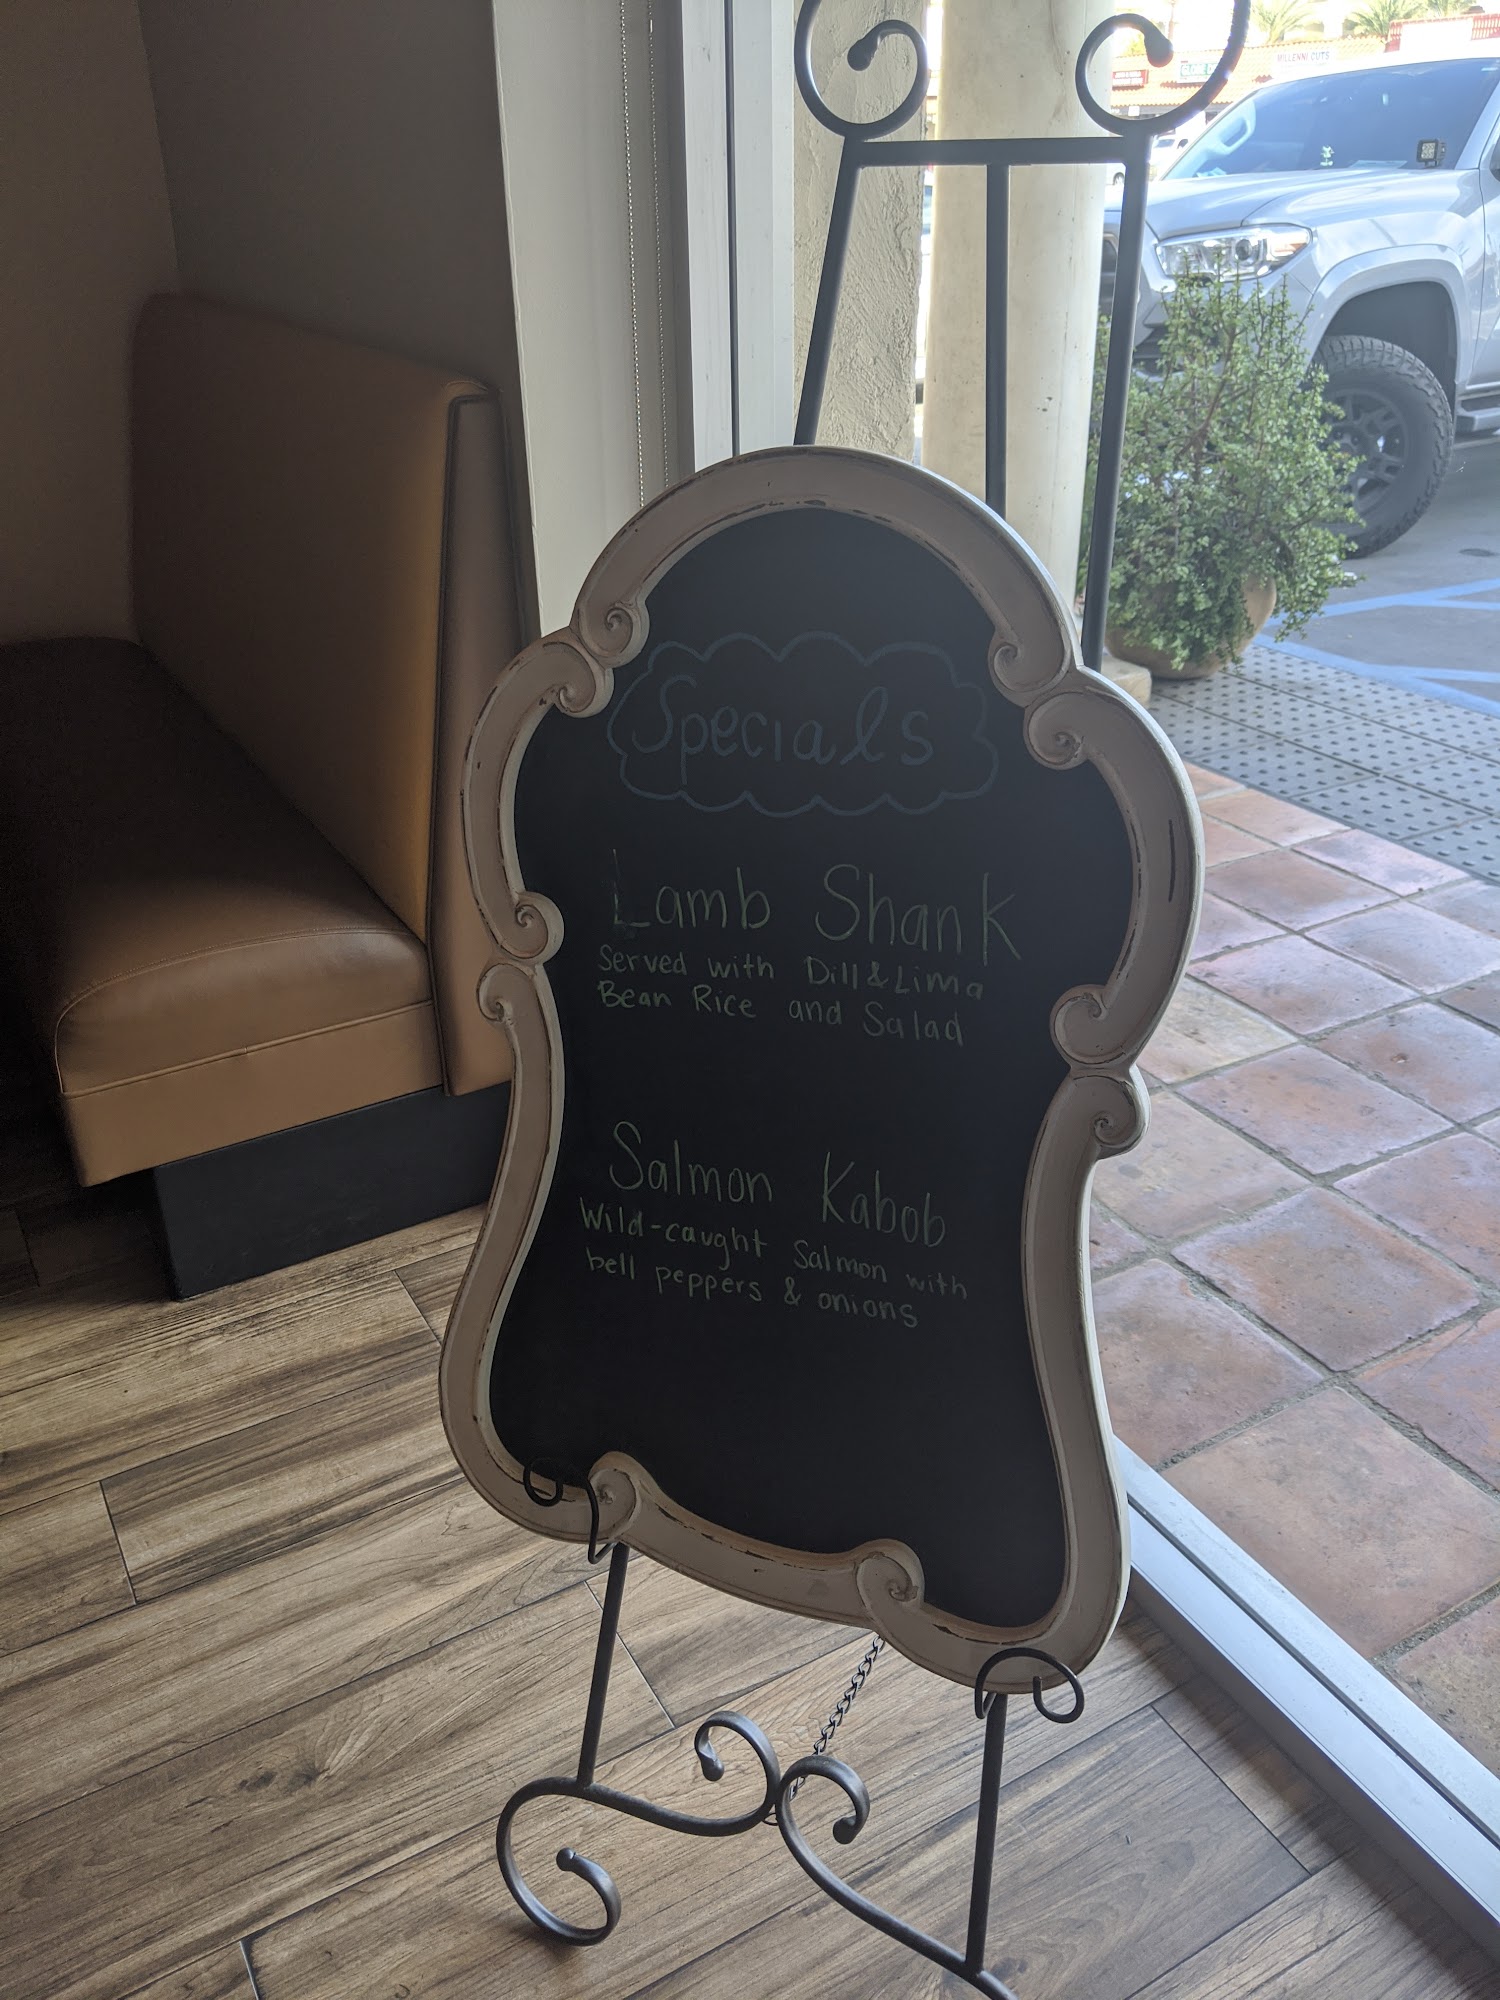 MILLENNI CUTS
Specials
Lamb Shank
Served with Dill & Lima
Bean Rice and Salad
Salmon Kabob
Wild-caught Salmon with
bell peppers & onions